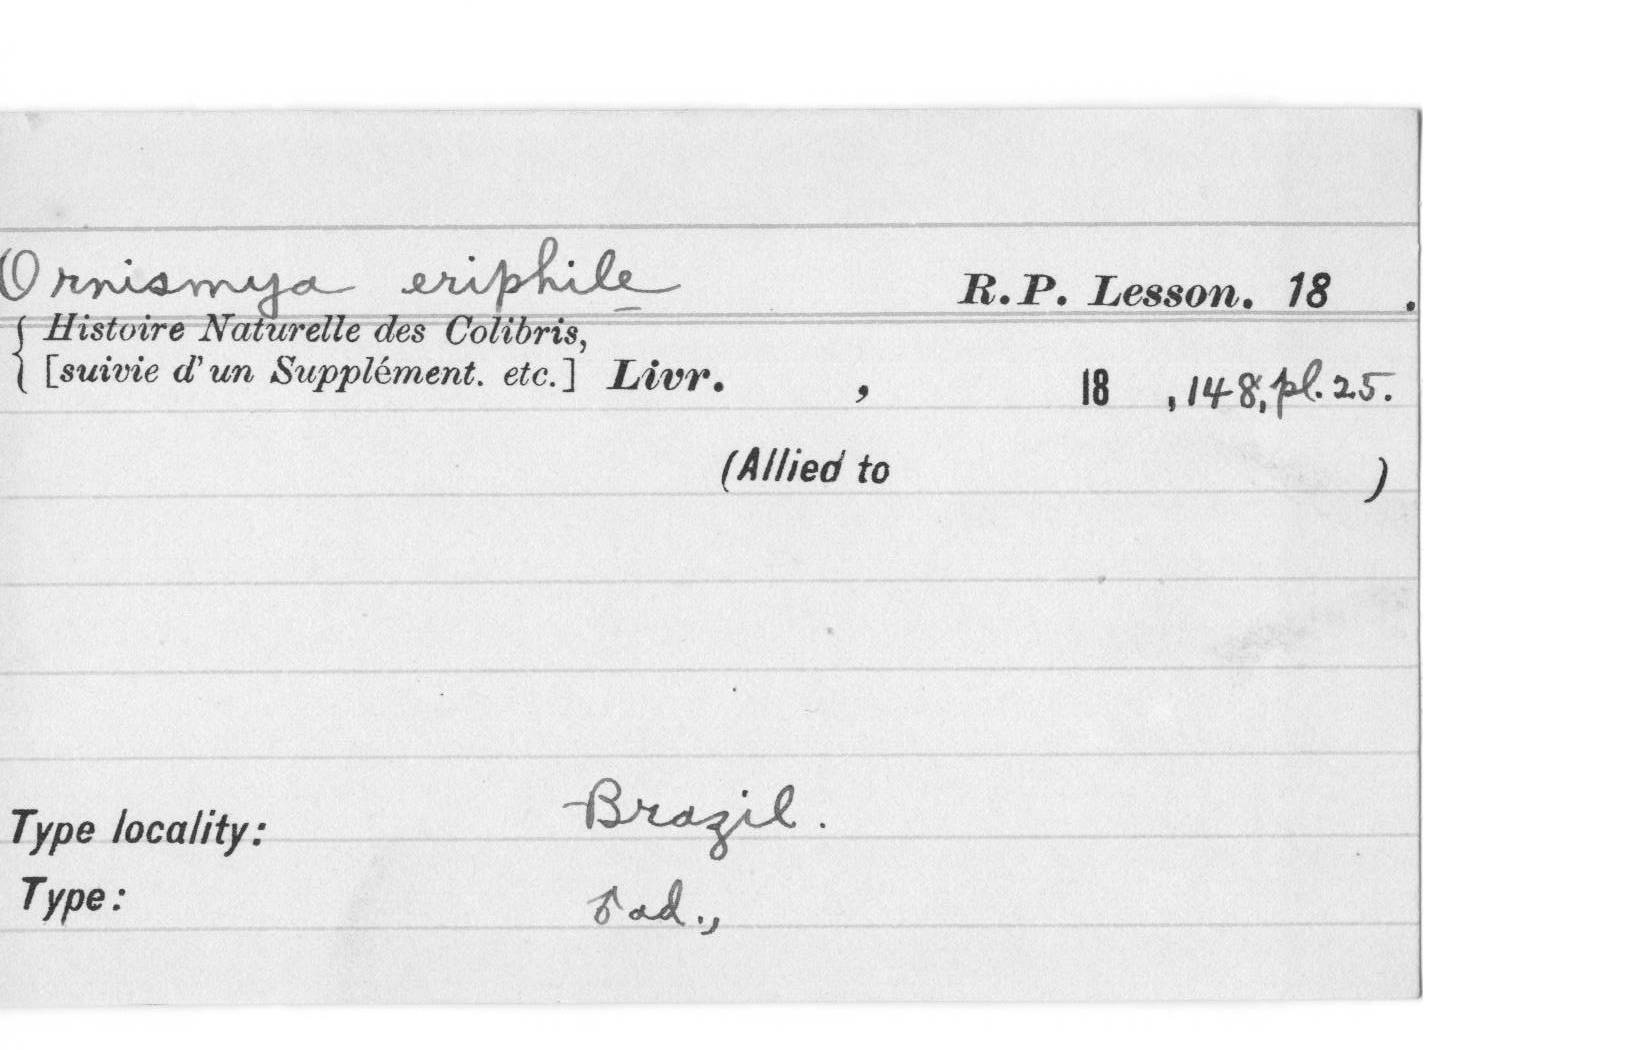 Ornismya eriphile R.P. Lesson. 18 .
{ Histoire Naturelle des Colibris,
[suivie d'un Supplément. etc.] Livr. , 18 , 148, pl. 25.
(Allied to )
Type locality: Brazil.
Type: ♂ ad.,